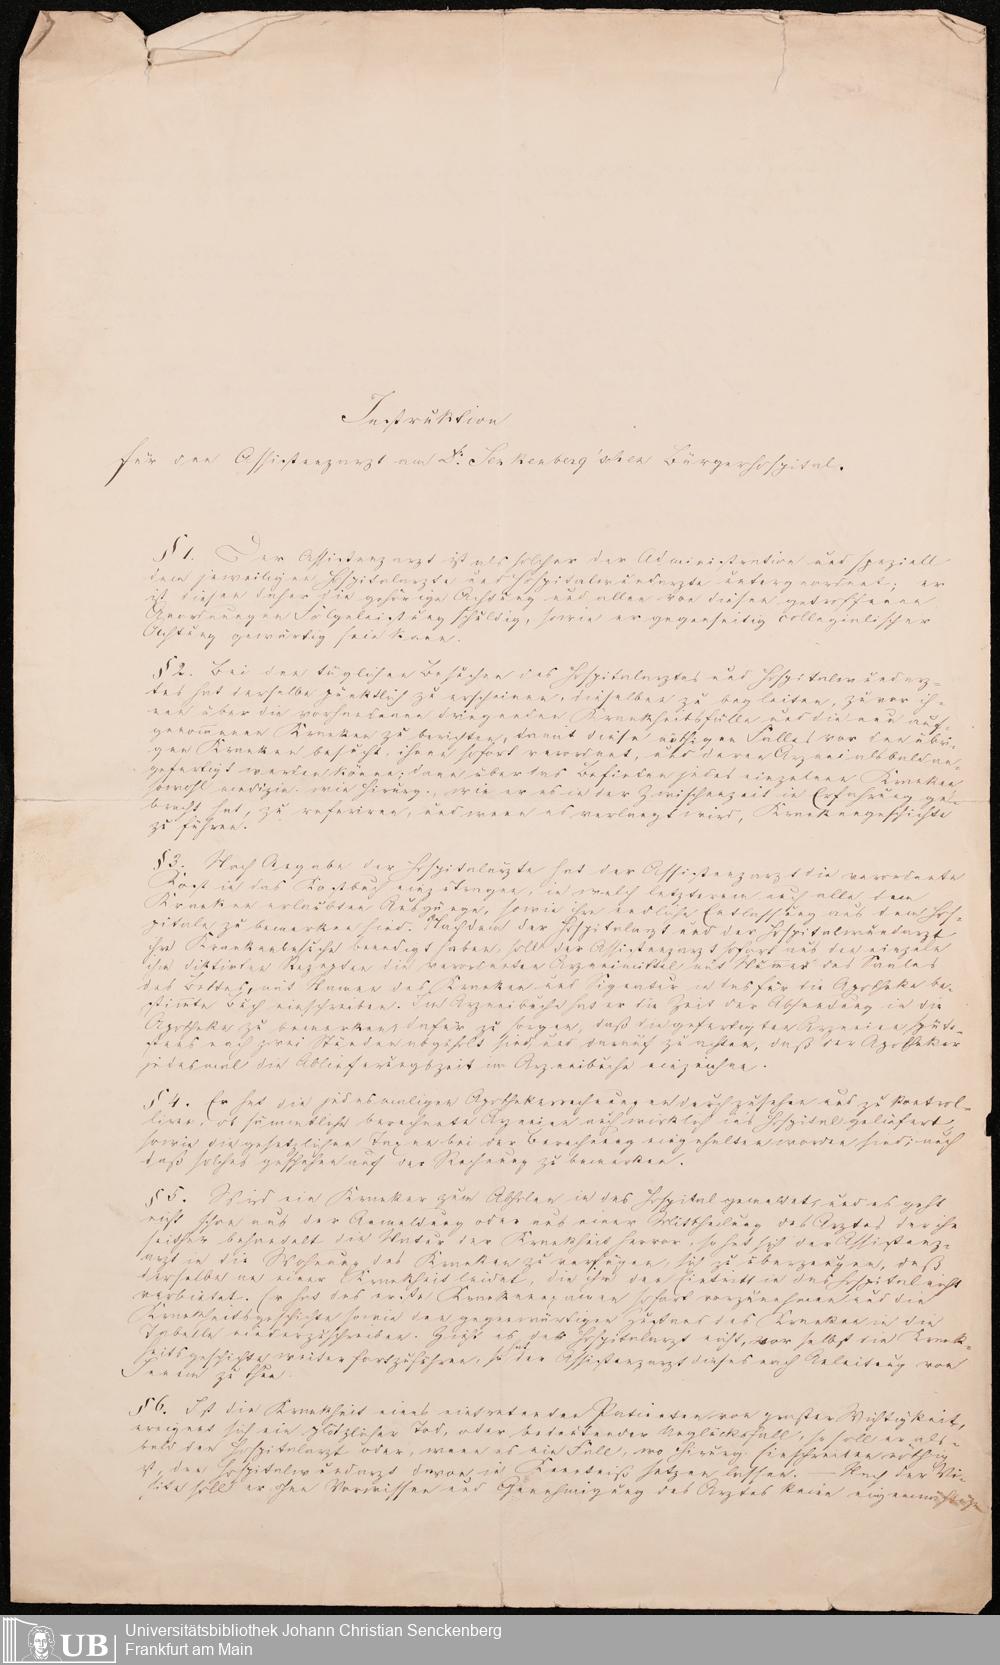 Instruktion
für den Assistenzarzt am Dr. Senkenberg'schen Bürgerhospital.
§ 1. Der Assistenzarzt ist als solcher der Administration und speziell
dem jeweiligen Hospitalarzte und Hospitalwundarzte untergeordnet; er
ist diesen daher die gehörige Achtung und allen von diesen getroffenen
Anordnungen Folgeleistung schuldig, sowie er gegenseitig collegialischer
Achtung gewärtig sein kann.
§ 2. Bei den täglichen Besuchen des Hospitalarztes und Hospitalwundarz-
tes hat derselbe pünktlich zu erscheinen, dieselben zu begleiten, zuvor ih-
nen über die vorhandenen dringenden Krankheitsfälle und die neu auf-
genommenen Kranken zu berichten, damit diese nöthigen Falles vor den übri-
gen Kranken besucht, ihnen sofort verordnet, und deren Arznei alsbald an-
gefertigt werden könne; dann über das Befinden jedes einzelnen Kranken,
sowohl medizin. wie chirurg., wie er es in der Zwischenzeit in Erfahrung ge-
bracht hat, zu referiren, und wenn es verlangt wird, Krankengeschichte
zu führen.
§ 3. Nach Angabe der Hospitalärzte hat der Assistenzarzt die verordnete
Kost in das Kostbuch einzutragen, in welch letzterem auch alle dem
Kranken erlaubten Ausgänge, sowie ihre endliche Entlassung aus dem Hos-
pitale zu bemerken sind. Nachdem der Hospitalarzt und der Hospitalwundarzt
ihre Krankenbesuche beendigt haben, soll der Assistenzarzt sofort aus den einzeln
ihm diktirten Rezepten die verordneten Arzneimittel mit Numer des Saales
des Bettes, mit Namen des Kranken und Signatur in das für die Apotheke be-
stimte Buch einschreiben. Im Arzneibuche hat er die Zeit der Absendung in die
Apotheke zu bemerken, dafür zu sorgen, daß die gefertigten Arzneien späte-
stens nach zwei Stunden abgeholt sind und darauf zu achten, daß der Apotheker
jedesmal die Ablieferungszeit im Arzneibuche einzeichne.
§ 4. Er hat die jedesmaligen Apothekerrechnungen durchzusehen und zu kontrol-
liren, ob sämmtliche berechnete Arzneien auch wirklich ins Hospital geliefert,
sowie die gesetzlichen Taxen bei der Berechnung eingehalten worden sind; auch
daß solches geschehen auf der Rechnung zu bemerken.
§ 5. Wird ein Kranker zum Abholen in das Hospital gemeldet, und es geht
nicht schon aus der Anmeldung oder aus einer Mittheilung des Arztes der ihn
seither behandelt die Natur der Krankheit hervor, so hat sich der Assistenz-
arzt in die Wohnung des Kranken zu verfügen, sich zu überzeugen, daß
derselbe an einer Krankheit leidet, die ihm den Eintritt in das Hospital nicht
verbietet. Er hat das erste Krankenexamen sofort vorzunehmen und die
Krankheitsgeschichte sowie den gegenwärtigen Zustand des Kranken in die
Tabelle niederzuschreiben. Zieht es der Hospitalarzt nicht vor selbst die Krank-
heitsgeschichte weiter fortzuführen, so hat der Assistenzarzt dieses nach Anleitung von
Jenem zu thun.
§ 6. Ist die Krankheit eines eintretenden Patienten von großer Wichtigkeit,
ereignet sich ein plötzlicher Tod, oder bedeutender Unglücksfall, so soll er als-
bald den Hospitalarzt oder, wenn es ein Fall, wo chirurg. Einschreiten nöthig
ist, den Hospitalwundarzt davon in Kenntniß setzen lassen. — Nach der Vi-
site soll er ohne Vorwissen und Genehmigung des Arztes keine eigenmächtige
Universitätsbibliothek Johann Christian Senckenberg
Frankfurt am Main
UB